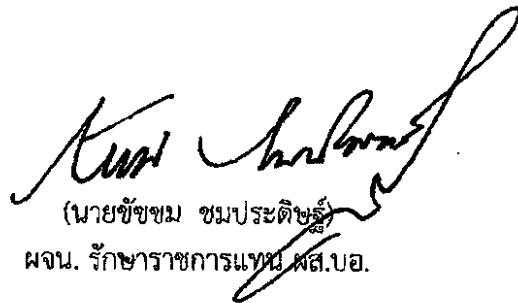 (นายขัชขม ชมประดิษฐ์)
ผจน. รักษาราชการแทน ผส.บอ.